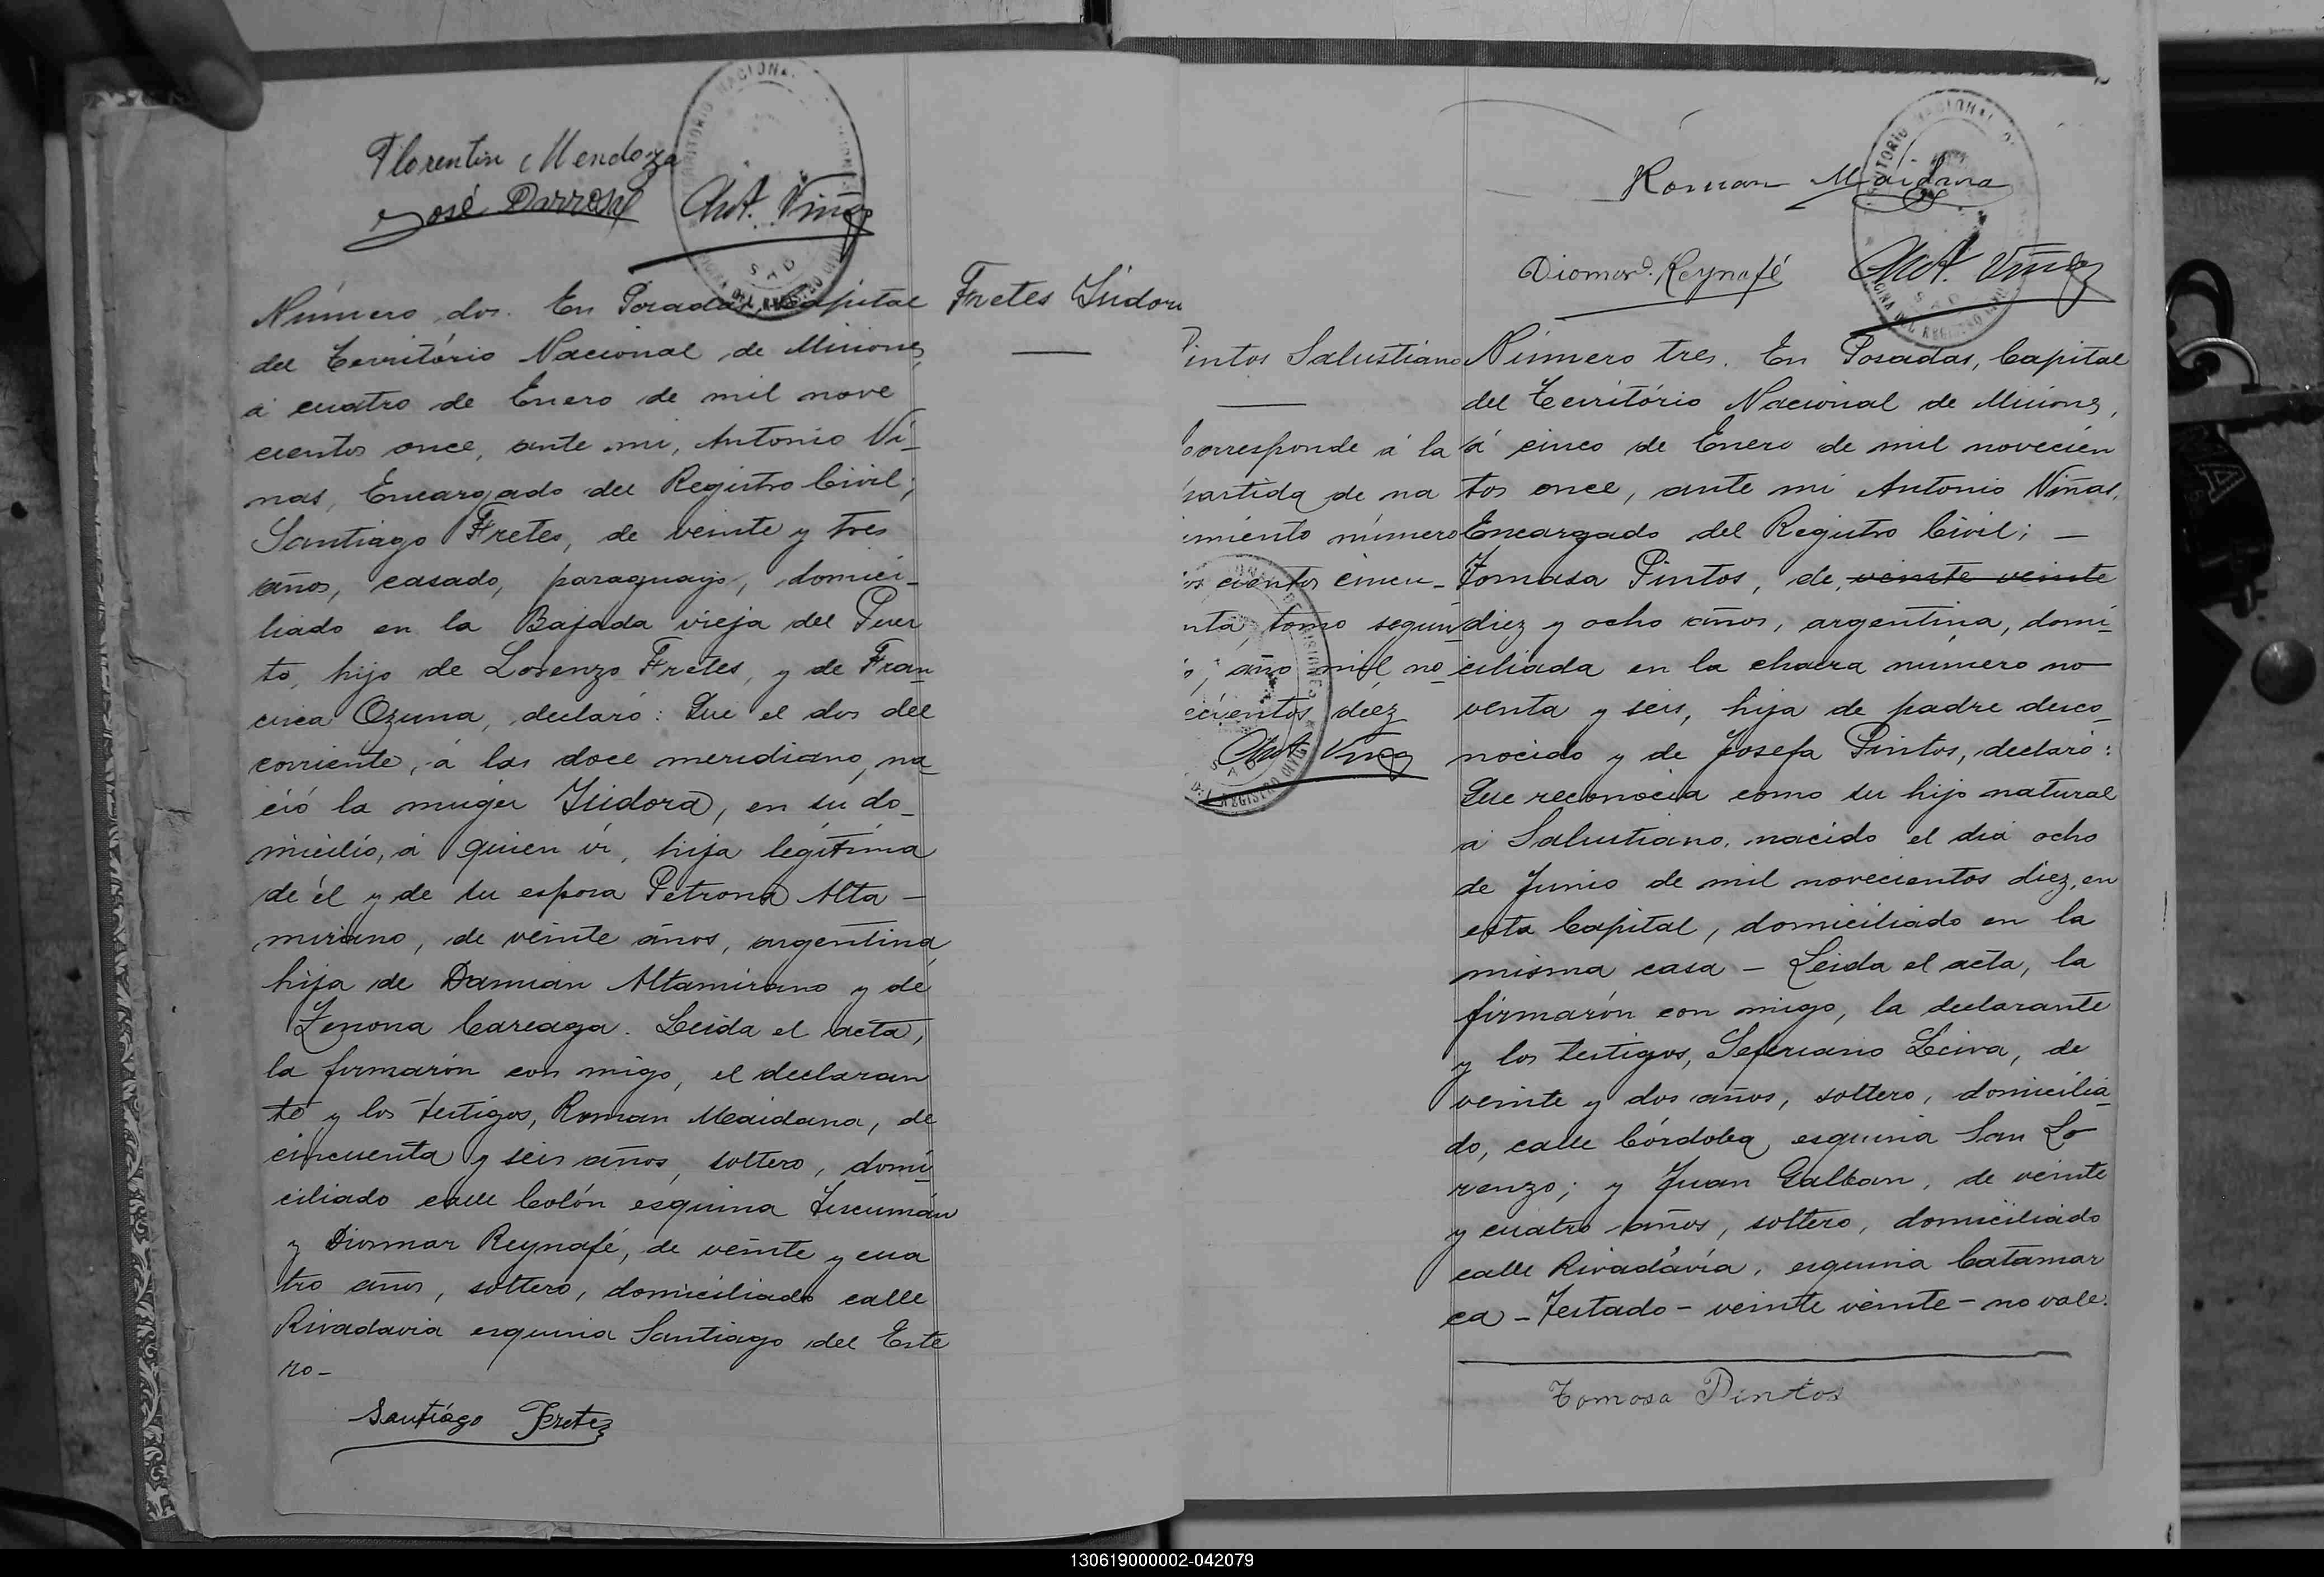 Florentin Mendoza
José Darrosé
Ant. Viñas
Número dos. En Posadas, Capital
del Território Nacional de Misiones,
á cuatro de Enero de mil nove
cientos once, ante mi, Antonio Vi-
ñas, Encargado del Registro Civil;
Santiago Fretes, de veinte y tres
años, casado, paraguayo, domici-
liado en la Bajada vieja del Puer
to, hijo de Lorenzo Fretes, y de Fran
cisca Ozuna, declaró: Que el dos del
corriente, á las doce meridiano, na-
ció la mujer Isidora, en su do-
micilio, á quien ví, hija legítima
de él y de su esposa Petrona Alta-
mirano, de veinte años, argentina,
hija de Damián Altamirano y de
Zenona Careaga. Leida el acta,
la firmarón con migo, el declaran
te y los testigos, Román Maidana, de
cincuenta y seis años, soltero, domi-
ciliado calle Colón esquina Tucumán
y Diomar Reynafé, de veinte y cua
tro años, soltero, domiciliado calle
Rivadavia esquina Santiago del Este
ro-
Santiago Fretes
Fretes Isidora
Roman Maidana
Diomard. Reynafé
Ant. Viñas
Pintos Salustiano
Corresponde á la
partida de na
cimiento número
cientos cincu-
nta, tomo segun
o, año mil no-
vecientos diez
Ant Viñas
Número tres. En Posadas, Capital
del Território Nacional de Misiones,
á cinco de Enero de mil novecien
tos once, ante mi Antonio Viñas,
Encargado del Registro Civil; —
Tomasa Pintos, de veinte veinte
diez y ocho años, argentina, domi-
ciliada en la chacra número no
venta y seis, hija de padre desco-
nocido y de Josefa Pintos, declaró:
Que reconocia como su hijo natural
á Salustiano, nacido el dia ocho
de Junio de mil novecientos diez, en
esta Capital, domiciliado en la
misma casa — Leida el acta, la
firmarón con migo, la declarante
y los testigos, Seferiano Leiva, de
veinte y dos años, soltero, domicilia-
do, calle Córdoba, esquina San Lo
renzo; y Juan Galban, de veinte
y cuatro años, soltero, domiciliado
calle Rivadávia, esquina Catamar
ca - Testado - veinte veinte - no vale.
Tomasa Pintos
130619000002-042079